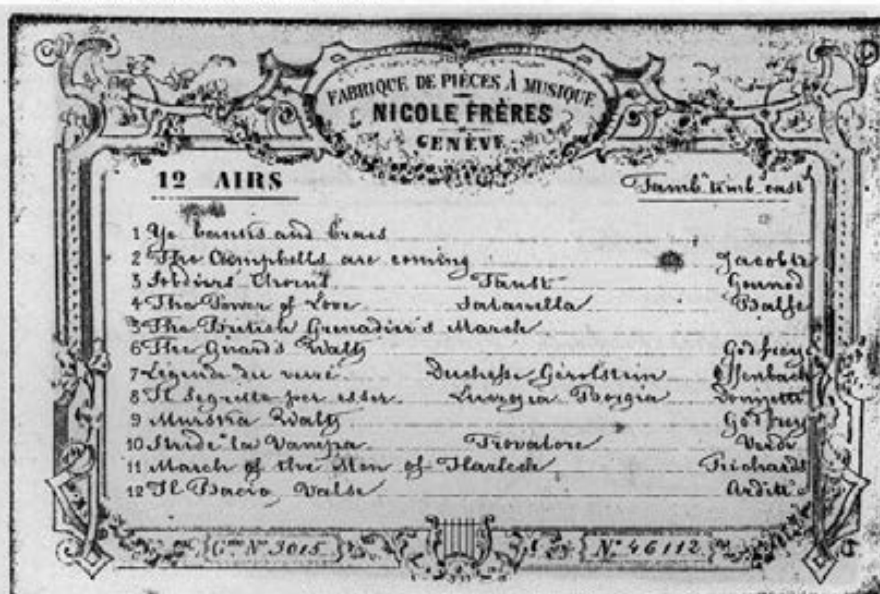 FABRIQUE DE PIÈCES À MUSIQUE
NICOLE FRÈRES
GENÈVE
12 AIRS Tamb. timb. cast
1 Ye banks and braes
2 The Campbells are coming Jacobite
3 Soldiers' Chorus Faust Gounod
4 The Power of Love Satanella Balfe
5 The British Grenadier's March
6 The Guard's Waltz Godfrey
7 Légende du verre Duchesse Gérolstein Offenbach
8 Il Segreto per esser Lucrezia Borgia Donizetti
9 Murska Waltz Godfrey
10 Stride la Vampa Trovatore Verdi
11 March of the Men of Harlech Richards
12 Il Bacio, Valse Arditi
G.me No. 3015 No. 46112